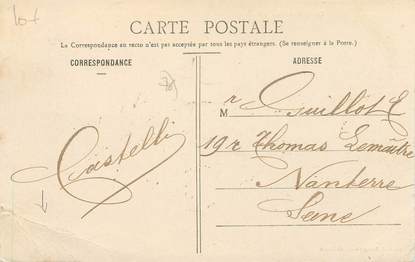 lot
CARTE POSTALE
La Correspondance au recto n'est pas acceptée par tous les pays étrangers. (Se renseigner à la Poste.)
CORRESPONDANCE
ADRESSE
Castelli
Mr Guillot E
19 r Thomas Lemaître
Nanterre
Seine